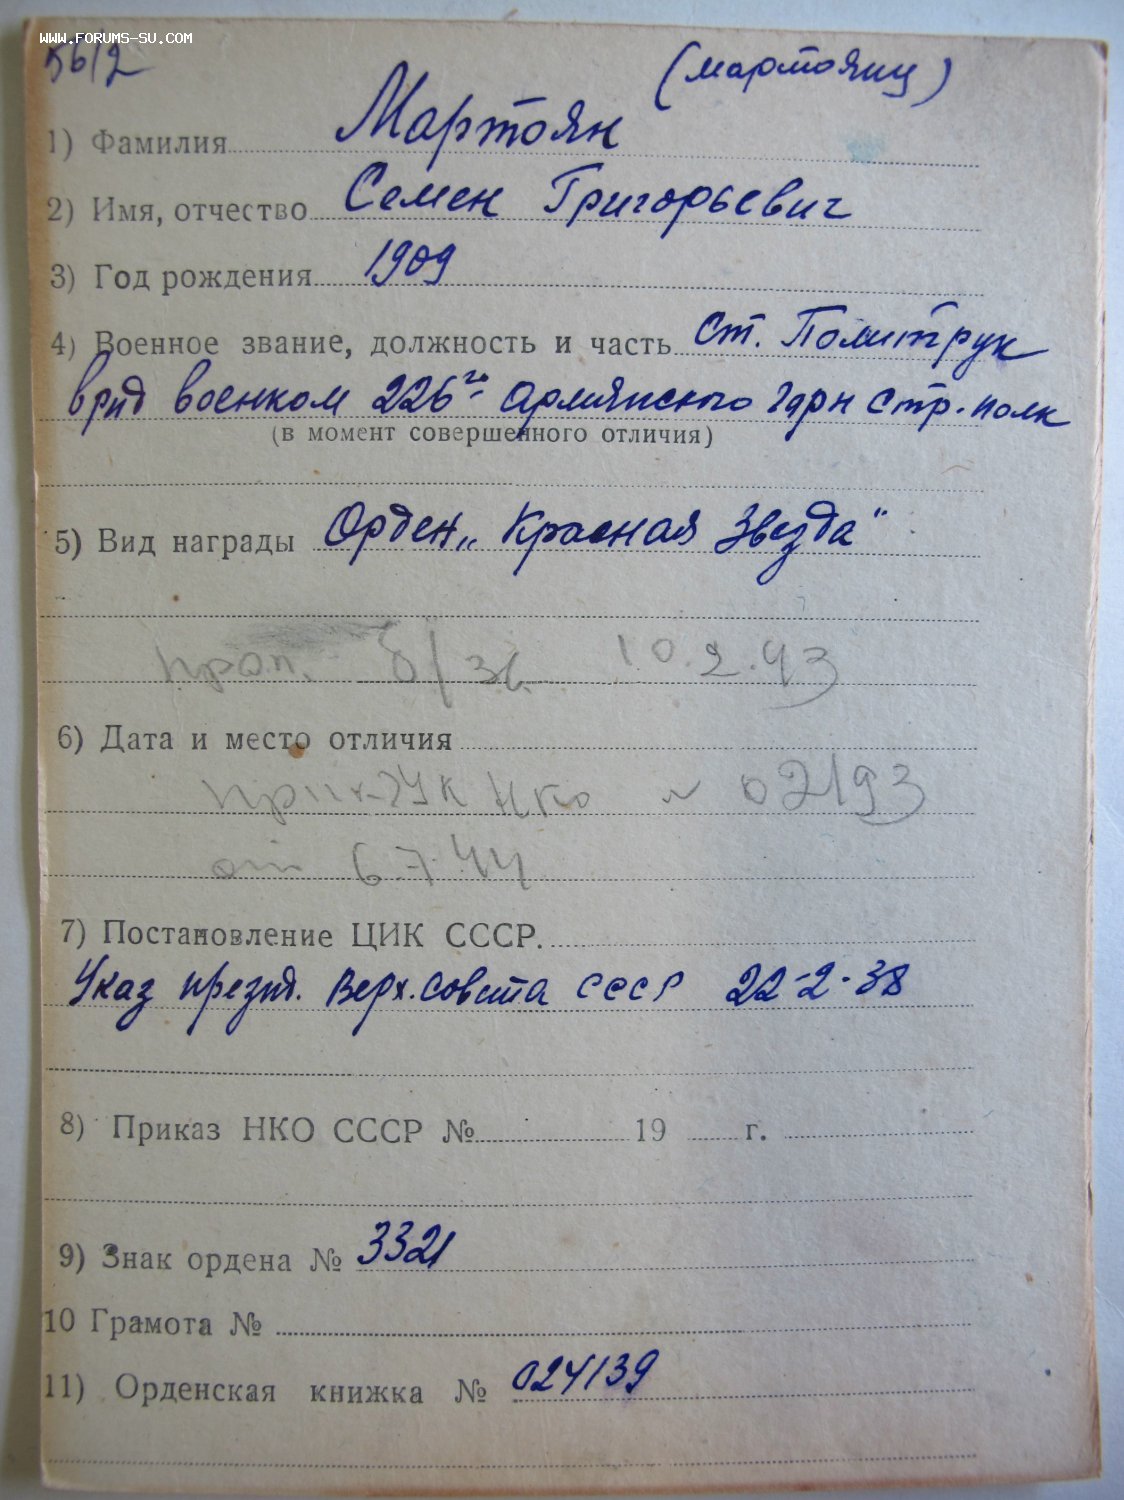 www.forums-su.com
(Мартоянц)
1) Фамилия Мартоян
2) Имя, отчество Семен Григорьевич
3) Год рождения 1909
4) Военное звание, должность и часть Ст. Политрук
врид военком 226го Армянского горн стр. полк
(в момент совершенного отличия)
5) Вид награды Орден „Красная Звезда"
проп. б/зв. 10.2.43
6) Дата и место отличия
НКО № 02193
от 6.7.44
7) Постановление ЦИК СССР.
Указ презид. Верх. Совета СССР 22-2-38
8) Приказ НКО СССР № 19 г.
9) Знак ордена № 3321
10 Грамота №
11) Орденская книжка № 024139